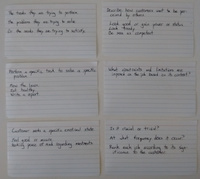 The tasks they are trying to perform.
The problems they are trying to solve.
Or the needs they are trying to satisfy.
Describes how customers want to be perceived by others.
Look good or gain power or status
Look trendy
Be seen as competent
Perform a specific task to solve a specific problem
Mow the lawn
Eat healthy
Write a report.
What constraints and limitations are imposed on the job based on its context?
Customers seek a specific emotional state
Feel good or secure
Seeking peace of mind regarding investments
Is it crucial or trivial?
At what frequency does it occur?
Rank each job according to its significance to the customer.